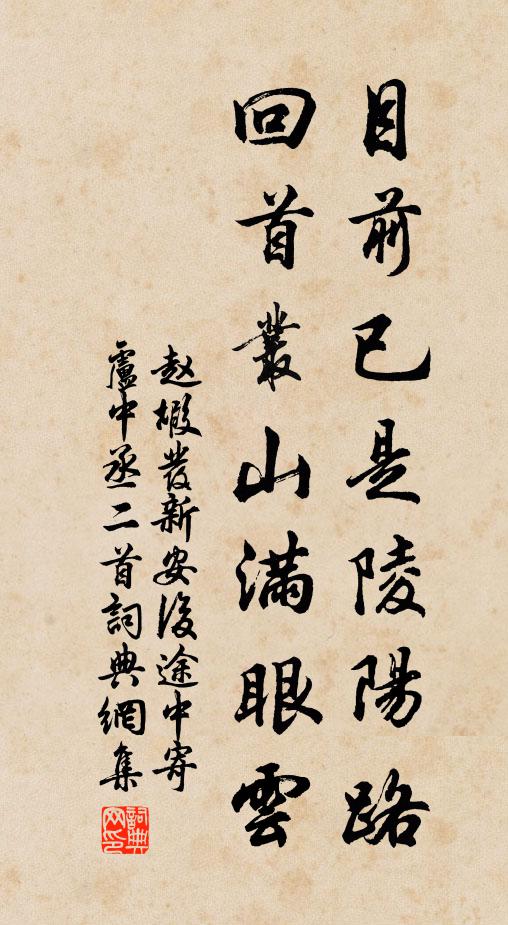 目前已是陵陽路
回首叢山滿眼雲
赵嘏發新安後途中寄
盧中丞二首詞典網集
詞典
网印